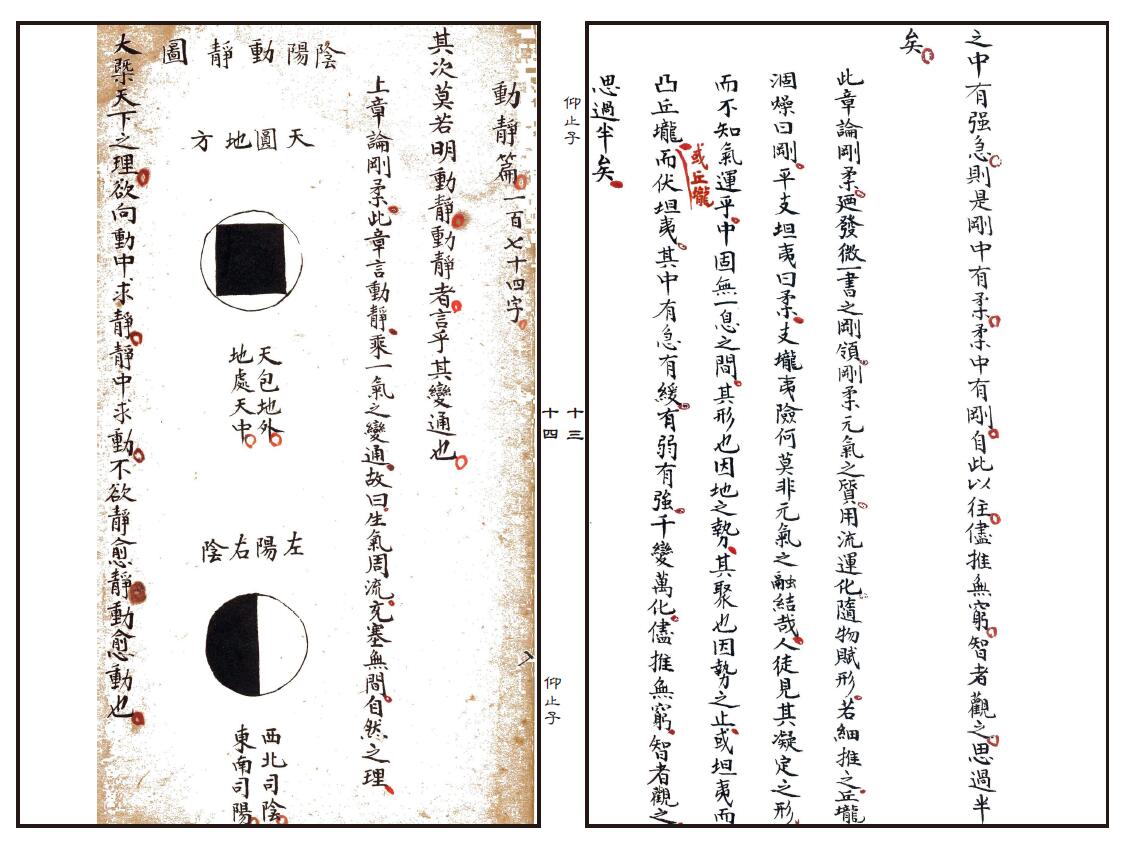 之中有强急則是剛中有柔柔中有剛自此以往儘推無窮智者觀之思過半
矣
此章論剛柔廼發微一書之剛領剛柔元氣之質用流運化隨物賦形若細推之丘壠
涸燥曰剛平支坦夷曰柔支壠夷險何莫非元氣之融結哉人徒見其凝定之形
而不知氣運乎中固無一息之間其形也因地之勢其聚也因勢之止或坦夷而
凸丘壠而伏坦夷其中有急有緩有弱有強千變萬化儘推無窮智者觀之
或丘壠
思過半矣
仰止子
十三
十四
仰止子
動靜篇一百七十四字
其次莫若明動靜動靜者言乎其變通也
上章論剛柔此章言動靜乘一氣之變通故曰生氣周流充塞無間自然之理
陰陽動靜圖
天圓地方
天包地外
地處天中
左陽右陰
西北司陰
東南司陽
大槩天下之理欲向動中求靜靜中求動不欲靜愈靜動愈動也